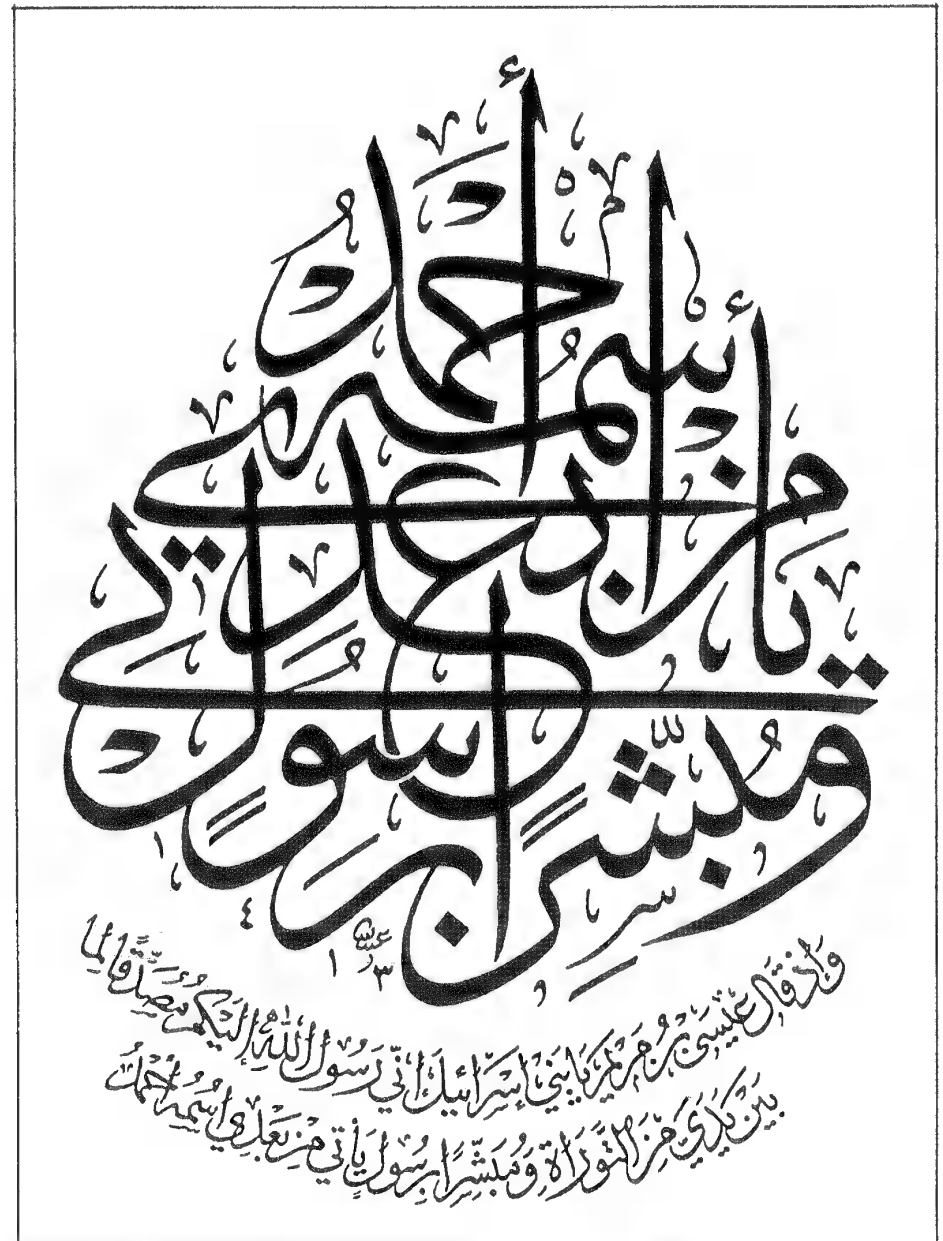 ومبشرًا برسولٍ يأتي من بعدي أسمه أحمد
وَإِذْ قَالَ عِيسَى بْنُ مَرْيَمَ يَا بَنِي إِسْرَائِيلَ إِنِّي رَسُولُ اللهِ إِلَيْكُمْ مُصَدِّقًا لِمَا
بَيْنَ يَدَيَّ مِنَ التَّوْرَاةِ وَمُبَشِّرًا بِرَسُولٍ يَأْتِي مِنْ بَعْدِي اسْمُهُ أَحْمَدُ